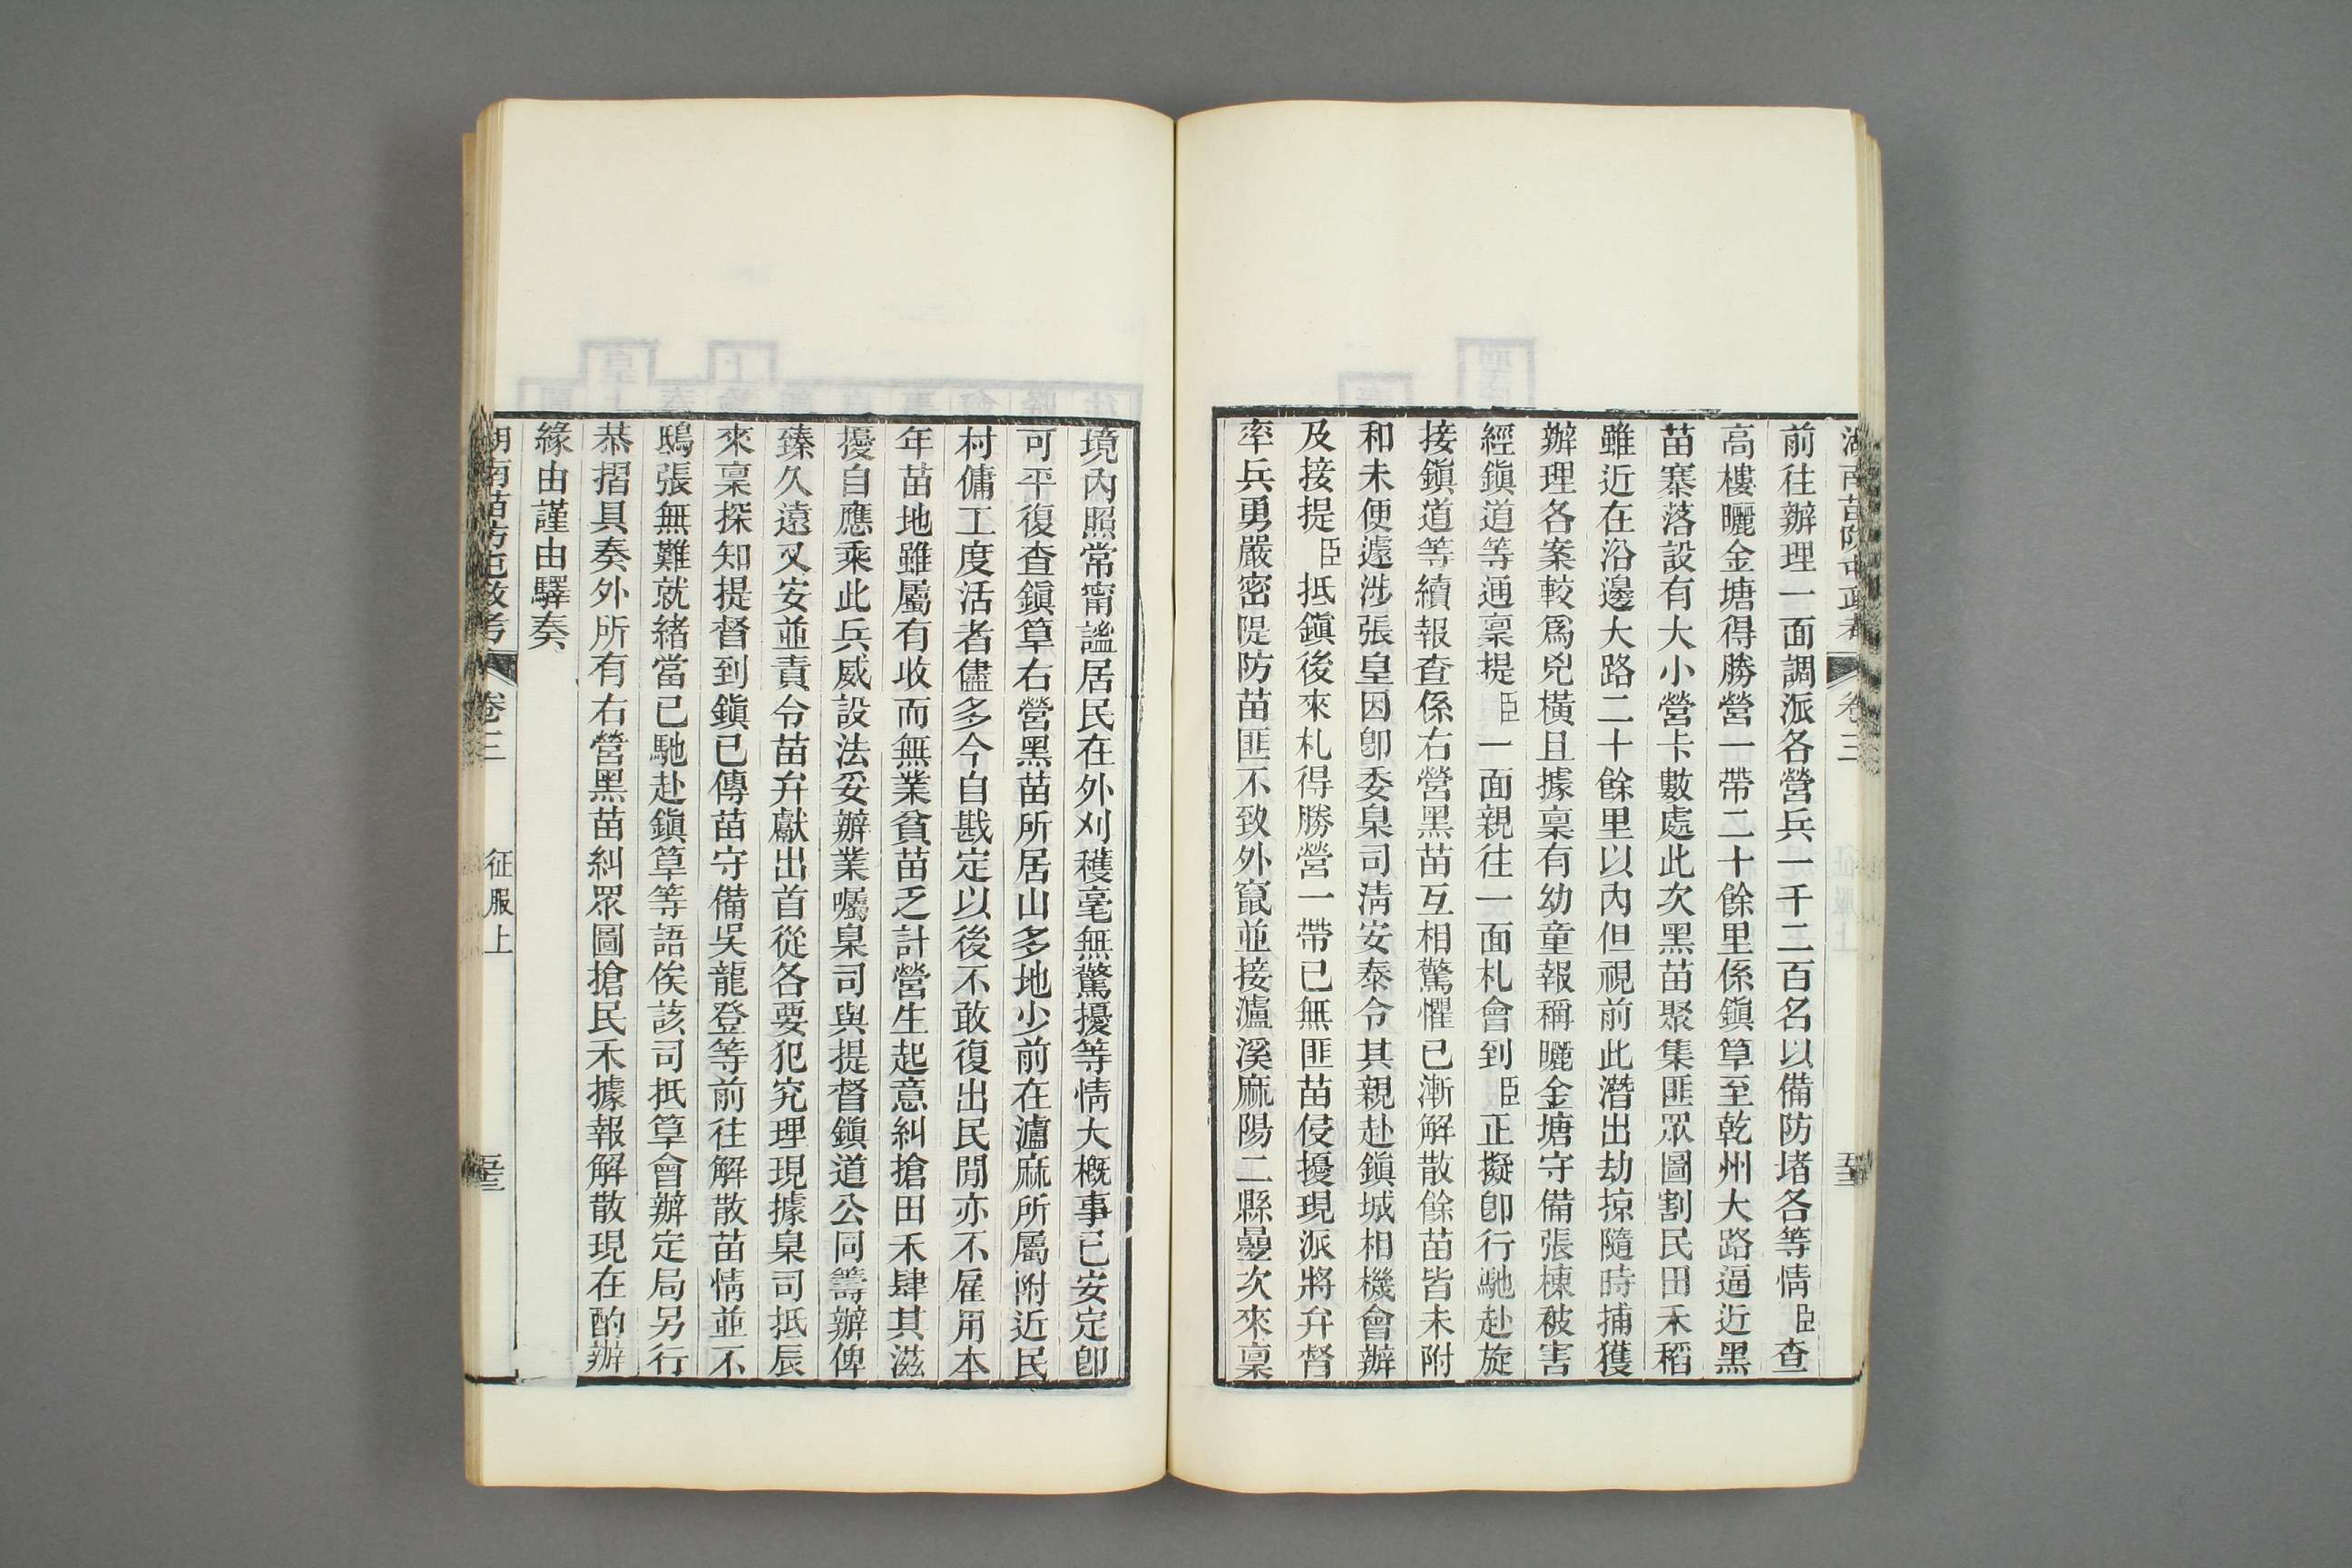 前往辦理一面調派各營兵一千二百名以備防堵各等情臣查
高樓曬金塘得勝營一帶二十餘里係鎮筸至乾州大路逼近黑
苗寨落設有大小營卡數處此次黑苗聚集匪眾圖割民田禾稻
雖近在沿邊大路二十餘里以內但視前此潛出劫掠隨時捕獲
辦理各案較爲兇橫且據稟有幼童報稱曬金塘守備張棟被害
經鎮道等通稟提臣一面親往一面札會到臣正擬卽行馳赴旋
接鎮道等續報查係右營黑苗互相驚懼已漸解散餘苗皆未附
和未便遽涉張皇因卽委臬司淸安泰令其親赴鎮城相機會辦
及接提臣抵鎮後來札得勝營一帶已無匪苗侵擾現派將弁督
率兵勇嚴密隄防苗匪不致外竄並接瀘溪麻陽二縣曡次來稟
境內照常甯謐居民在外刈穫毫無驚擾等情大概事已安定卽
可平復查鎮筸右營黑苗所居山多地少前在瀘麻所屬附近民
村傭工度活者儘多今自戡定以後不敢復出民閒亦不雇用本
年苗地雖屬有收而無業貧苗乏計營生起意糾搶田禾肆其滋
擾自應乘此兵威設法妥辦業囑臬司與提督鎮道公同籌辦俾
臻久遠乂安並責令苗弁獻出首從各要犯究理現據臬司抵辰
來稟探知提督到鎮已傳苗守備吳龍登等前往解散苗情並不
鴟張無難就緒當已馳赴鎮筸等語俟該司抵筸會辦定局另行
恭摺具奏外所有右營黑苗糾眾圖搶民禾據報解散現在酌辦
緣由謹由驛奏
湖南苗防屯政考 卷三 征服上 五三